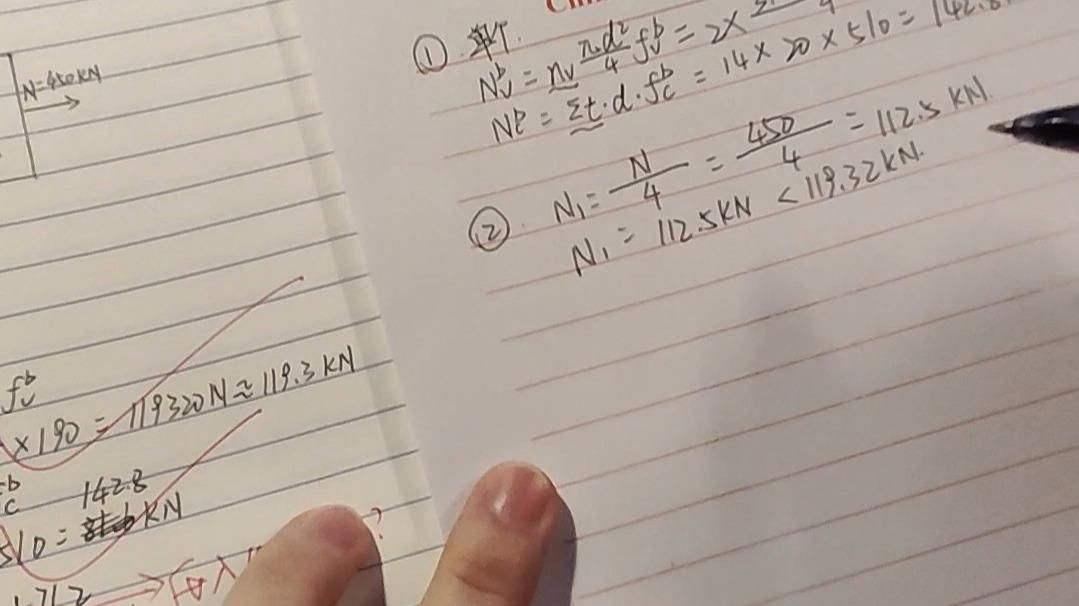 N=450KN
f_v^b
×190 = 119320N≈119.3KN
142.8
510= KN
① 单个.
N_v^b = n_v πd²/4 f_v^b = 2×
N_c^b = Σt·d·f_c^b = 14×20×510= 142.8
② N₁= N/4 = 450/4 = 112.5 KN.
N₁ = 112.5KN < 119.32KN.